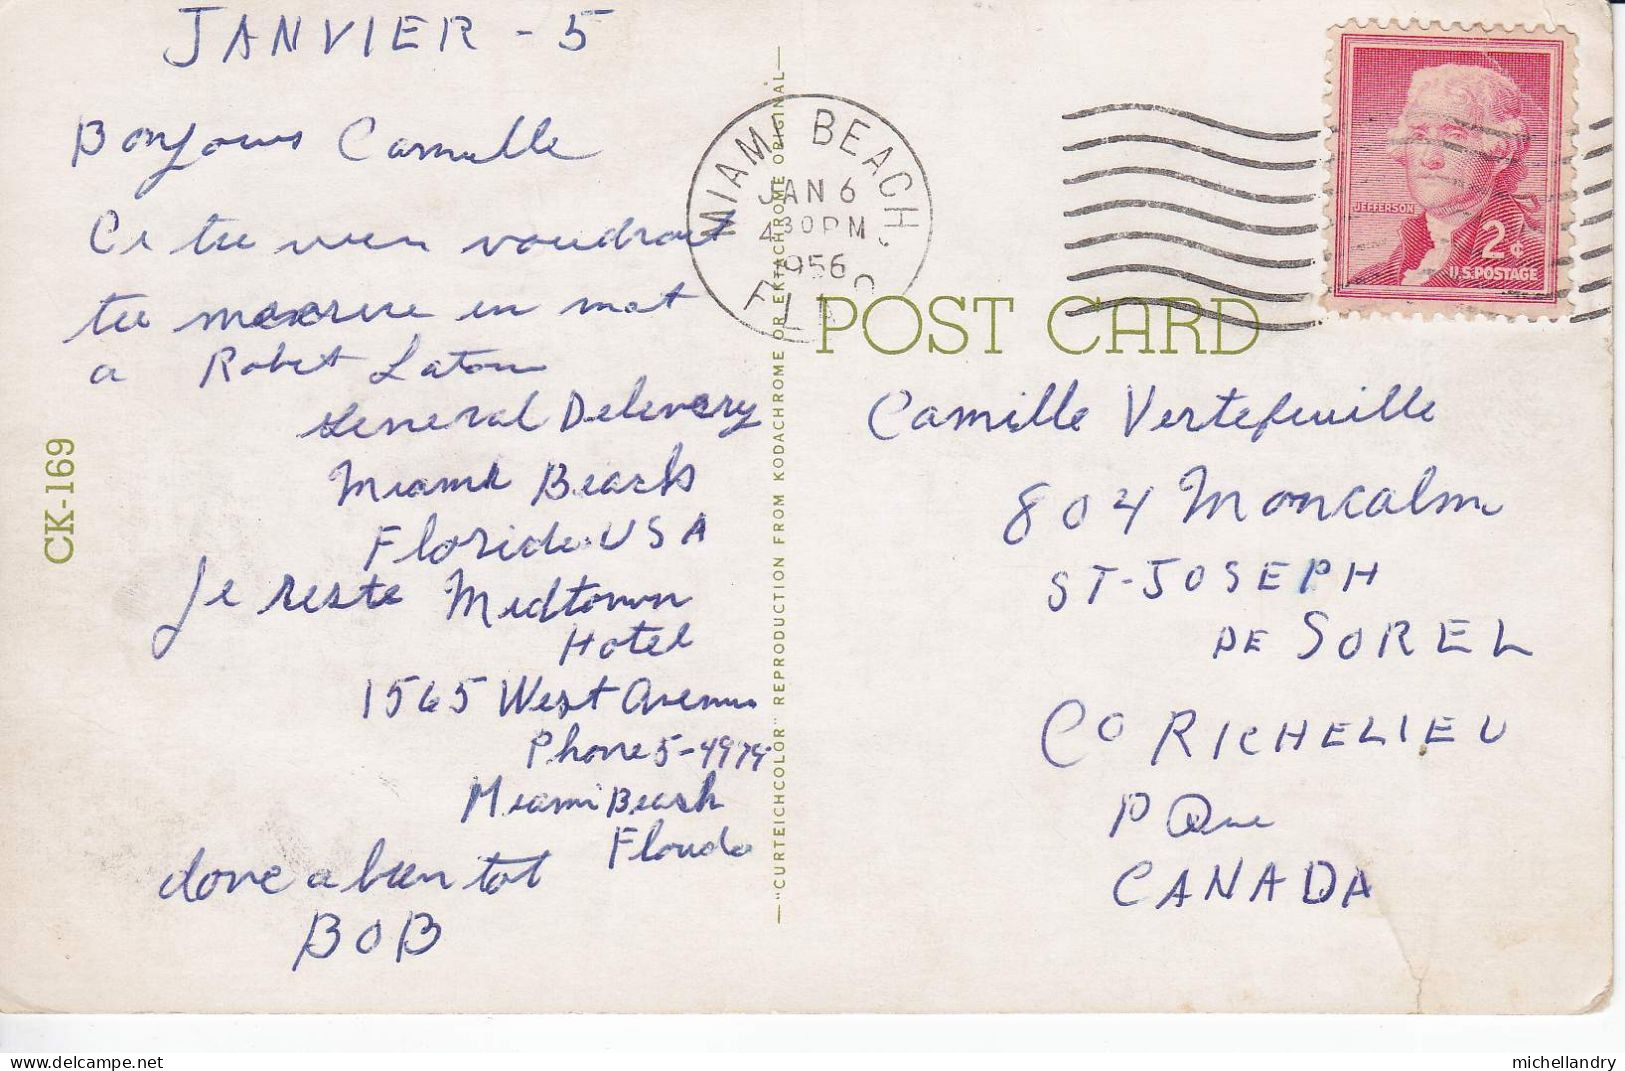 JANVIER - 5
Bonjour Camille
Ci tu veux voudrait
tu mecrire en mot
a Robert Laton
General Delevery
Miami Beach
Floride USA
Je reste Midtown
Hotel
1565 West Avenue
Phone 5-4979
Miami Beach
Florida
donc a bien tot
BOB
CK-169
"CURTEICHCOLOR" REPRODUCTION FROM KODACHROME OR EKTACHROME ORIGINAL
MIAMI BEACH
JAN 6
430 PM
1956
FLA
POST CARD
JEFFERSON
2¢
U.S. POSTAGE
Camille Vertefeuille
804 Moncalm
ST-JOSEPH
DE SOREL
Co RICHELIEU
P Que
CANADA
michellandry